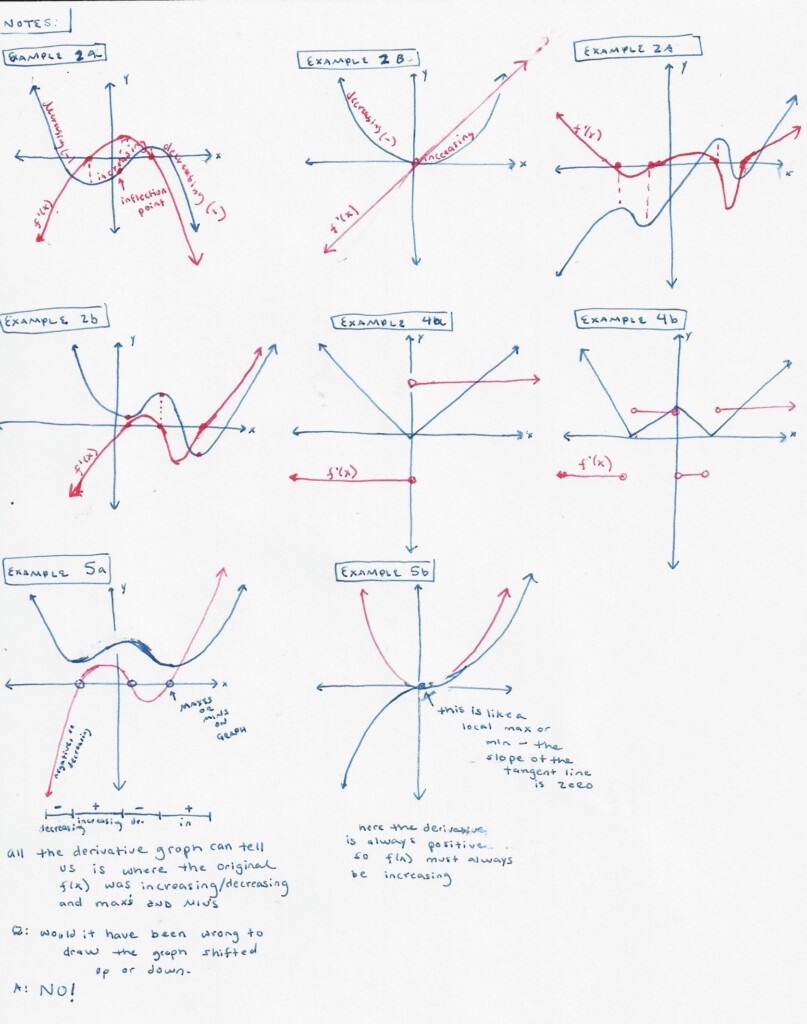 NOTES:
EXAMPLE 2a
y
x
decreasing (-)
increasing
decreasing (-)
f'(x)
inflection
point
EXAMPLE 2B
decreasing (-)
increasing
x
f'(x)
EXAMPLE 2A
f'(x)
y
x
EXAMPLE 2b
y
x
f'(x)
EXAMPLE 4a
y
x
f'(x)
EXAMPLE 4b
y
x
f'(x)
EXAMPLE 5a
y
x
MAXES
OR
MINS
ON
GRAPH
negative so
decreasing
- + - +
decreasing increasing de. in
all the derivative graph can tell
us is where the original
f(x) was increasing/decreasing
and max's AND MIN'S
Q: would it have been wrong to
draw the graph shifted
up or down.
A: NO!
EXAMPLE 5b
this is like a
local max or
min - the
slope of the
tangent line
is zero
here the derivative
is always positive...
so f(x) must always
be increasing